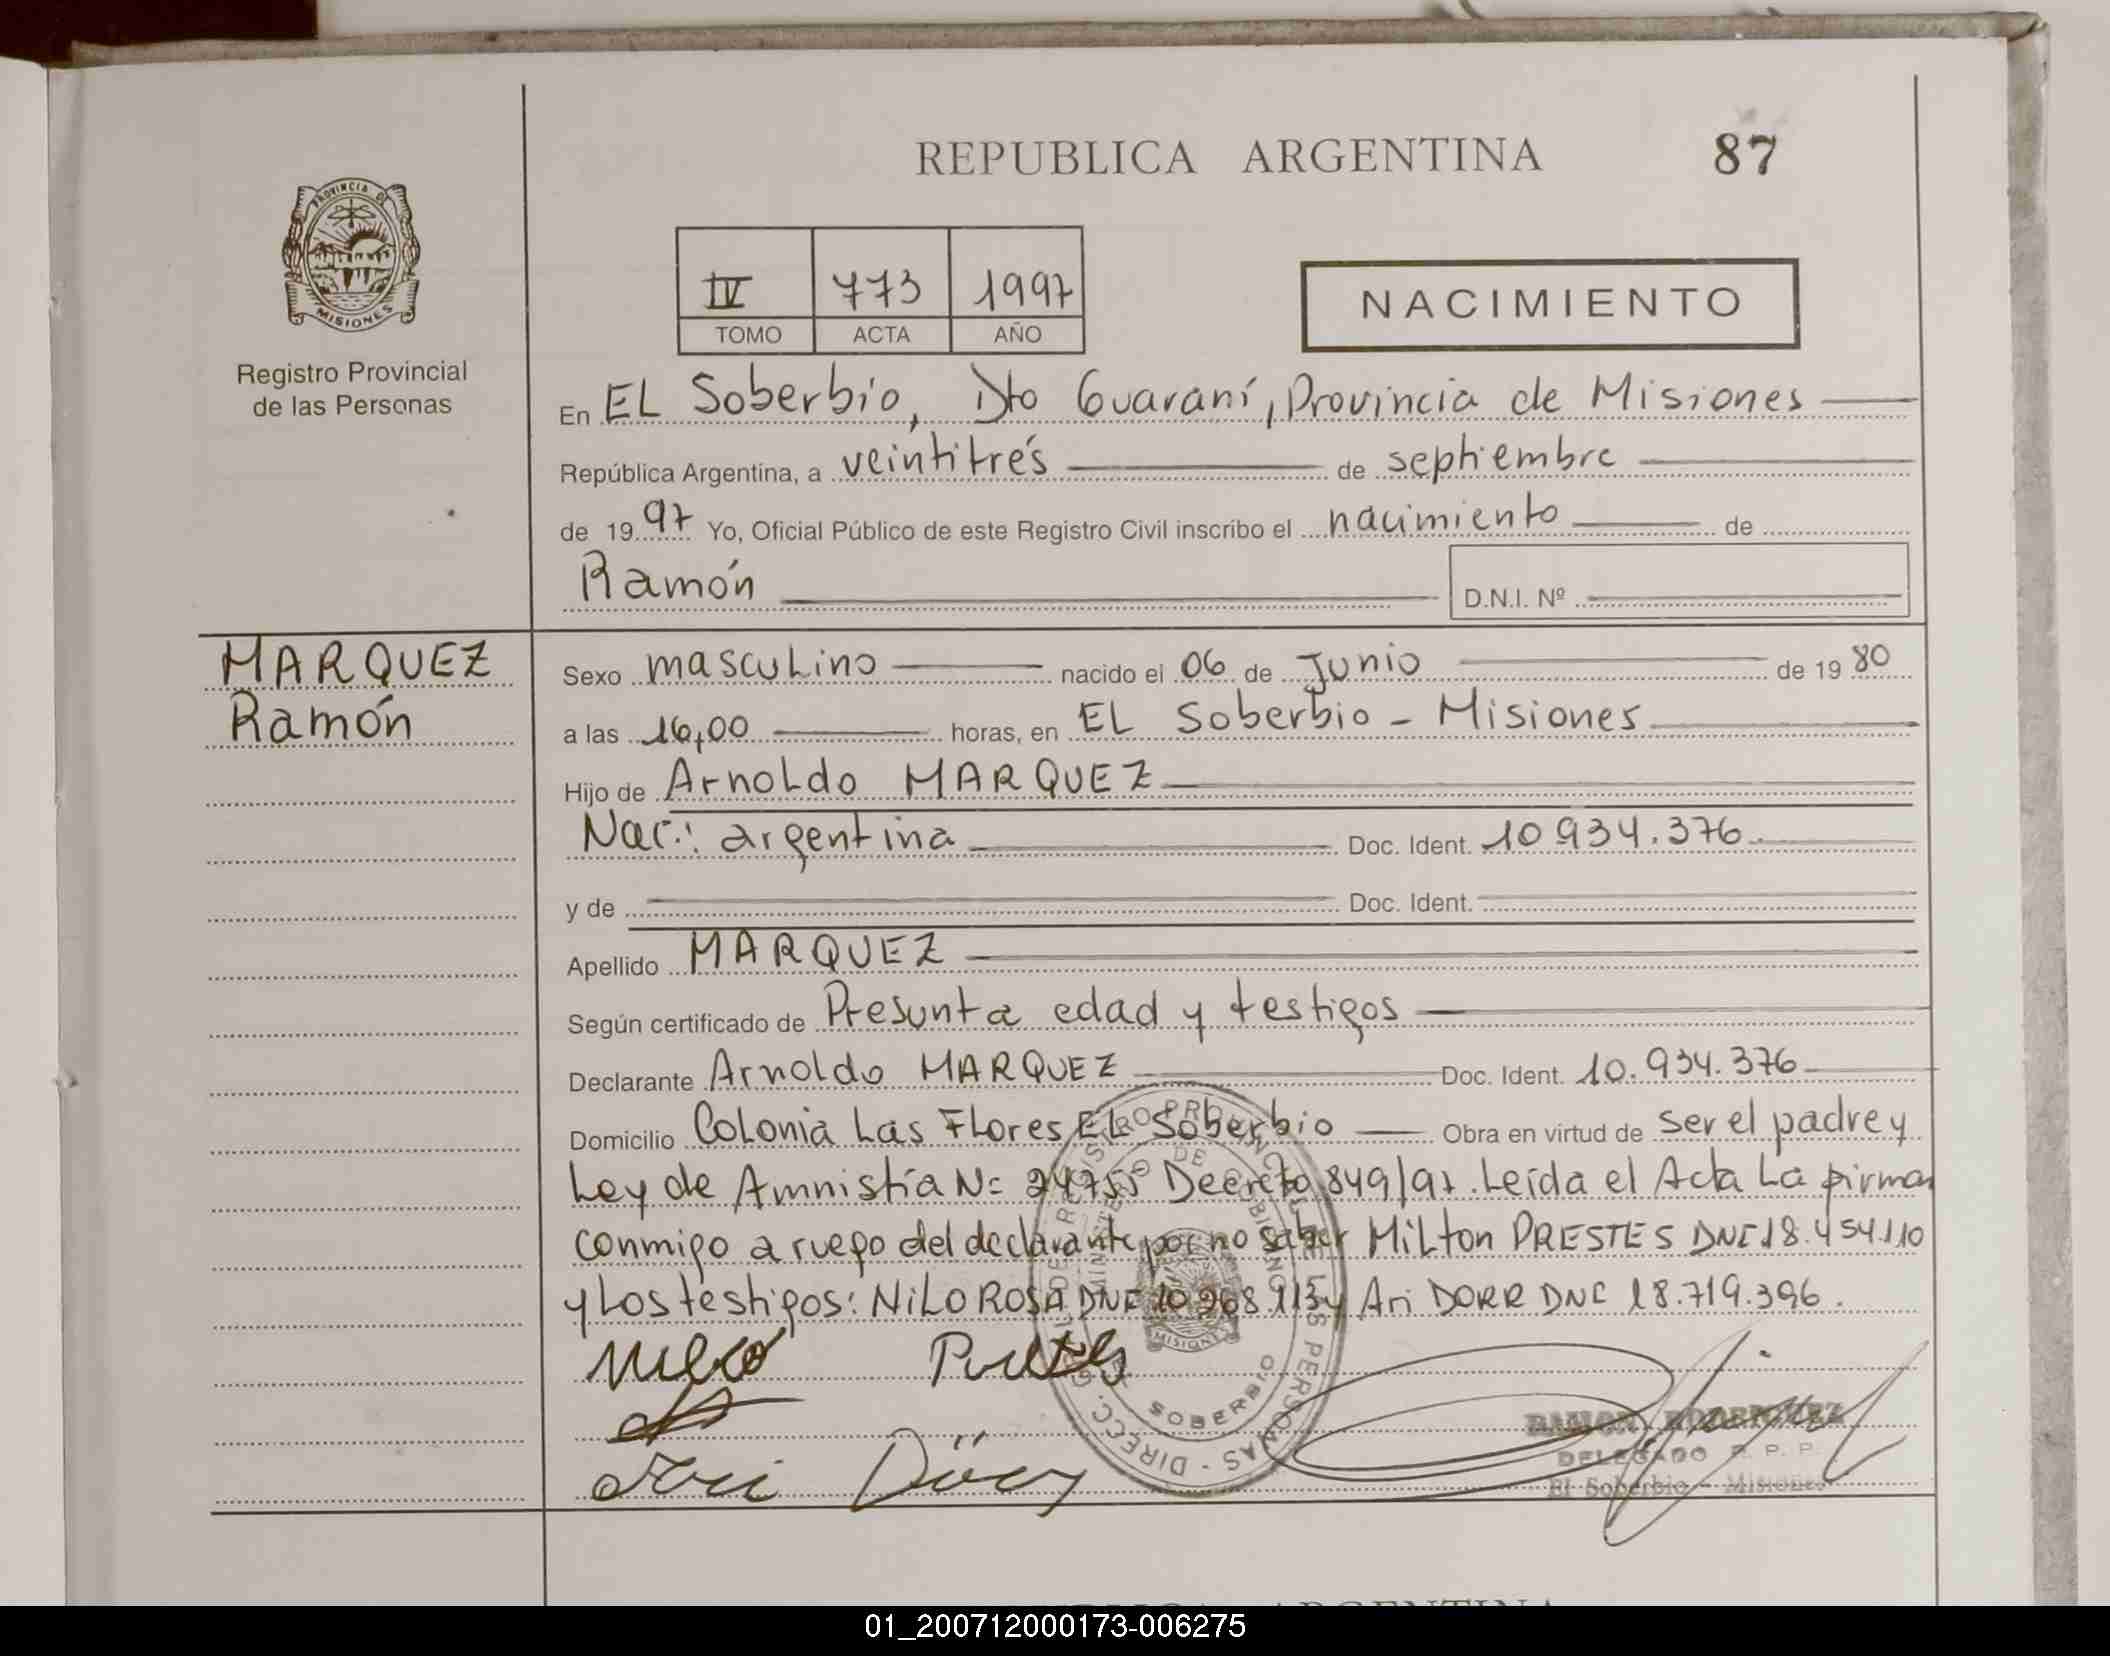 REPUBLICA ARGENTINA
87
PROVINCIA DE
MISIONES
Registro Provincial
de las Personas
IV 773 1997
TOMO ACTA AÑO
NACIMIENTO
En EL Soberbio, Dto Guaraní, Provincia de Misiones
República Argentina, a veintitrés de septiembre
de 1997 Yo, Oficial Público de este Registro Civil inscribo el nacimiento de
Ramón
D.N.I. Nº
MARQUEZ
Ramón
Sexo masculino nacido el 06 de Junio de 1980
a las 16,00 horas, en EL Soberbio - Misiones
Hijo de Arnoldo MARQUEZ
Nac.: argentina Doc. Ident. 10.934.376
y de Doc. Ident.
Apellido MARQUEZ
Según certificado de Presunta edad y testigos
Declarante Arnoldo MARQUEZ Doc. Ident. 10.934.376
Domicilio Colonia Las Flores EL Soberbio Obra en virtud de ser el padre y
Ley de Amnistía Nº 24755 Decreto 849/97. Leída el Acta La firman
conmigo a ruego del declarante por no saber Milton PRESTES DNI 18.454.110
y Los testigos: NiLO ROSA DNI 10.968.113 y Ari DORR DNI 18.719.396.
RAMON RODRIGUEZ
DELEGADO R. P. P.
El Soberbio - Misiones
SOBERBIO
01_200712000173-006275